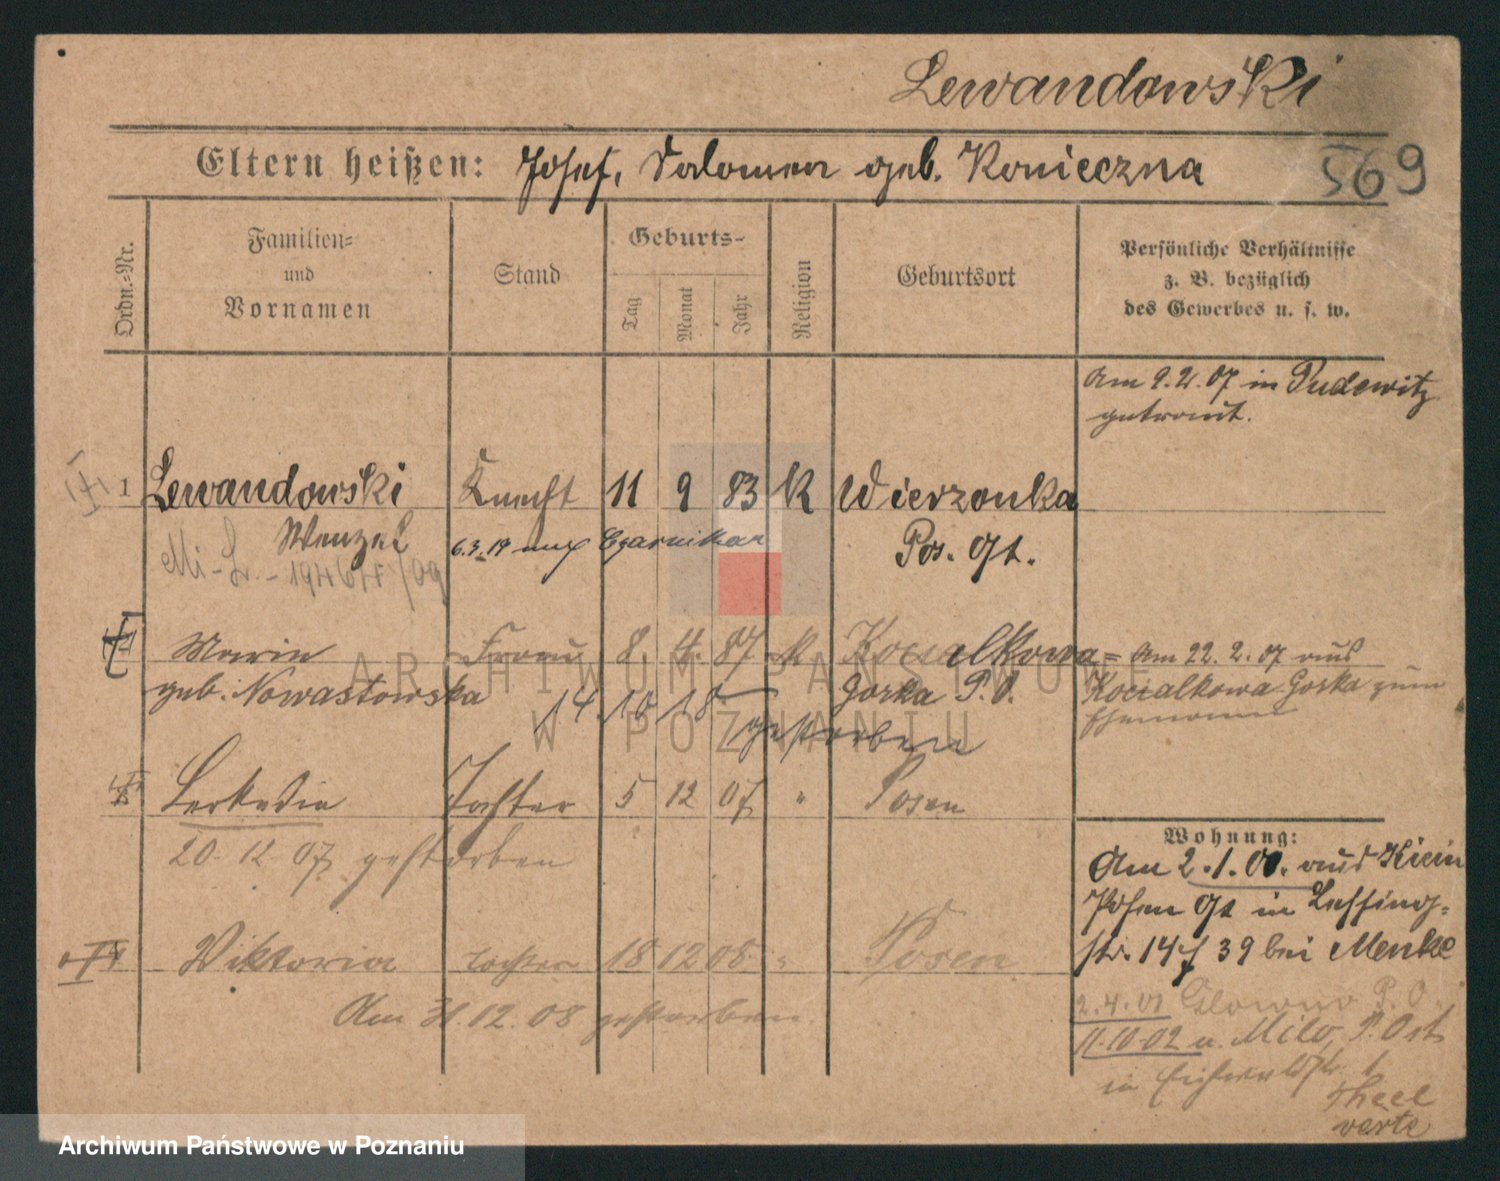 Lewandowski
Eltern heißen: Josef, Salomea geb. Konieczna
569
Ordn.=Nr.
Familien=
und
Vornamen
Stand
Geburts-
Tag
Monat
Jahr
Religion
Geburtsort
Persönliche Verhältnisse
z. B. bezüglich
des Gewerbes u. s. w.
Am 9.2.07 in Pudewitz
getraut.
1 Lewandowski Knecht 11 9 83 k Wierzonka
Wenzel 6.3.19 Czarnikau Pos. Ot.
Mi-L.-19464/09
Marie Frau 8. 4. 87 k Kocialkowa= Am 22.2.07 aus
geb. Nowastowska Gorka P.O. Kocialkowa Gorka zum
Ehemann
14.10.18 gestorben
Leokadia Tochter 5 12 07 " Posen
20.12.07 gestorben
Wohnung:
Am 2.1.00. aus
Posen Ot in Lessing-
str. 14 39 bei Menke
Viktoria Tochter 18 12 08 " Posen
Am 31.12.08 gestorben.
2.4.01 Glowno P.O.
11.10.02 n. Milo, P. Ost
in
verte
ARCHIWUM PAŃSTWOWE
W POZNANIU
Archiwum Państwowe w Poznaniu